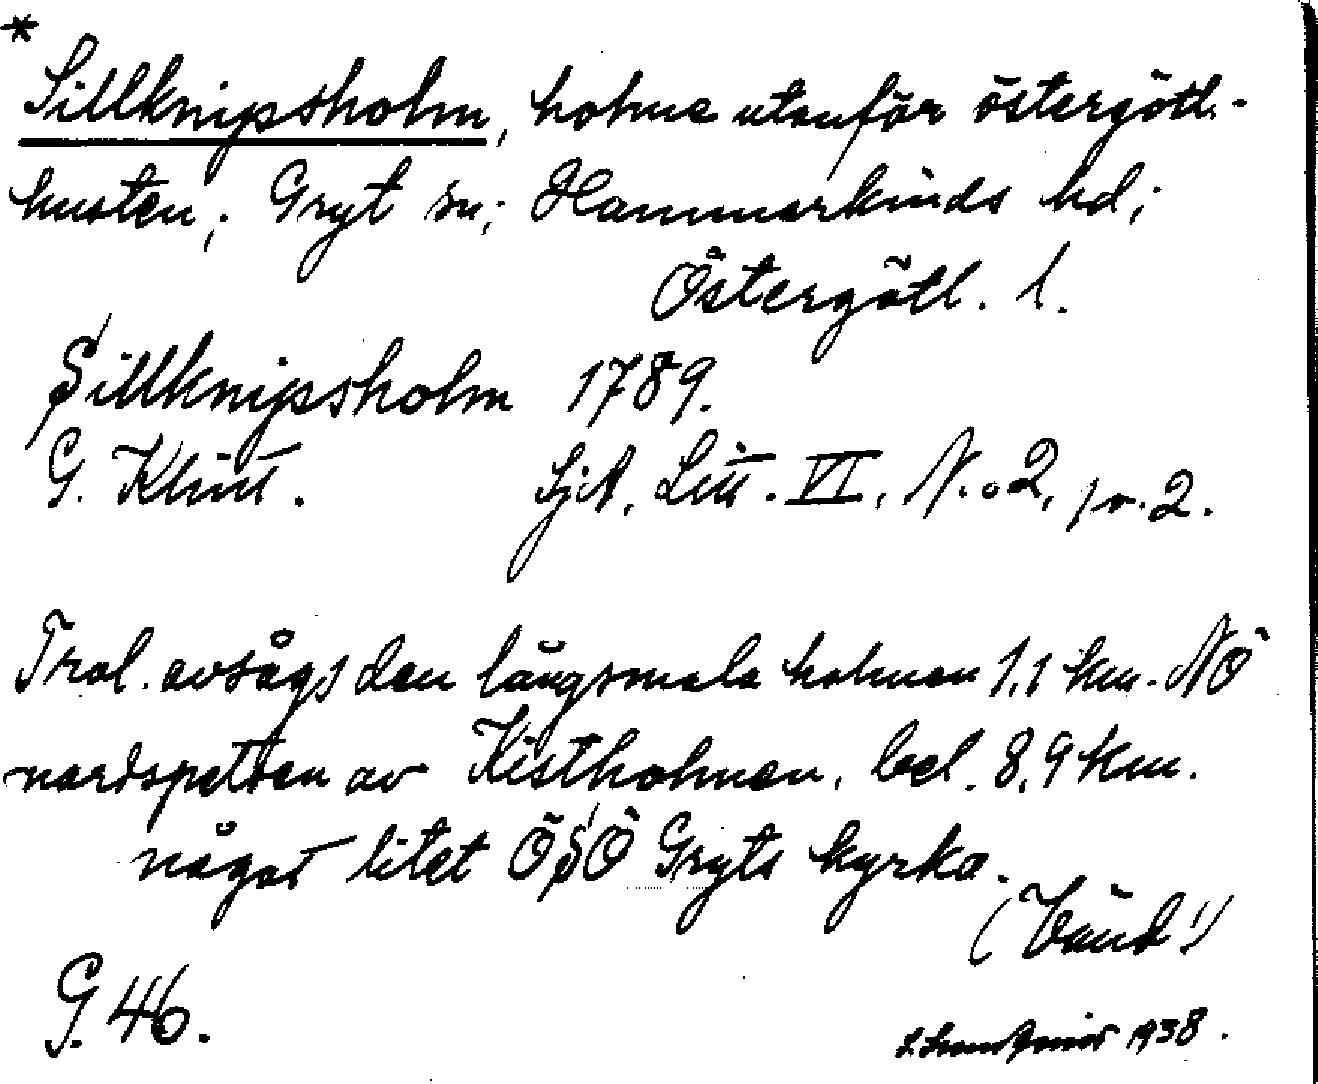 *
Sillknipsholm, holme utanför östergötl.-
kusten; Gryt sn; Hammarkinds hd;
Östergötl. l.
Sillknipsholm 1789.
G. Klint. SjA, Litt. VI, N.o 2, pr. 2.
Trol. avsågs den långsmala holmen 1,1 km. NÖ
nordspetsen av Kistholmen, bel. 8,9 km.
något litet ÖSÖ Gryts kyrka.
(Vänd!)
G. 46.
1938.